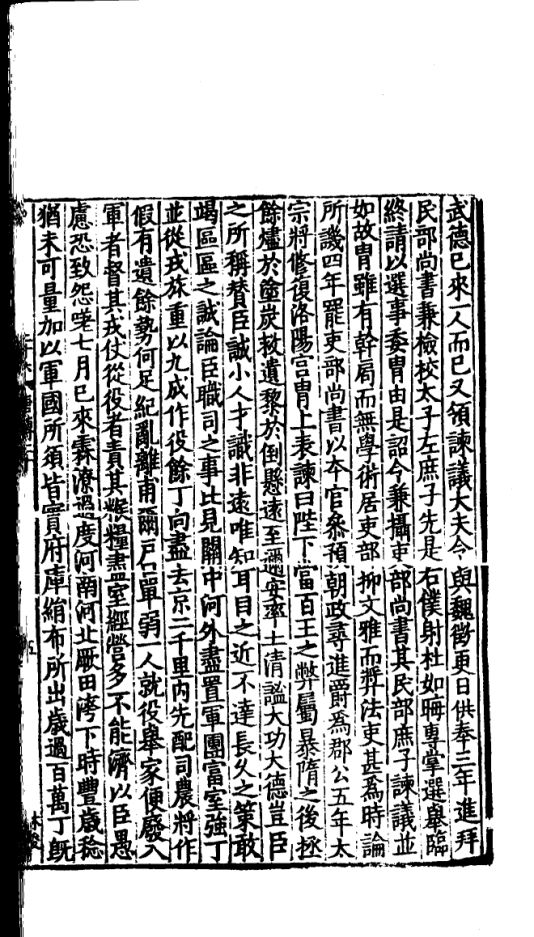 武德已來一人而已又領諫議大夫令與魏徵更日供奉三年進拜
民部尚書兼檢校太子左庶子先是右僕射杜如晦專掌選舉臨
終請以選事委胄由是詔令兼攝吏部尚書其民部庶子諫議並
如故胄雖有幹局而無學術居吏部抑文雅而奬法吏甚爲時論
所譏四年罷吏部尚書以本官叅預朝政尋進爵爲郡公五年太
宗將修復洛陽宫胄上表諫曰陛下當百王之弊屬暴隋之後拯
餘燼於塗炭救遺黎於倒懸遠至邇安率土清謐大功大德豈臣
之所稱賛臣誠小人才識非遠唯知耳目之近不達長久之策敢
竭區區之誠論臣職司之事比見關中河外盡置軍團富室強丁
並從戎旅重以九成作役餘丁向盡去京二千里内先配司農將作
假有遺餘勢何足紀亂離甫爾户口單弱一人就役舉家便廢入
軍者督其戎仗從役者責其糇糧盡室經營多不能濟以臣愚
慮恐致怨嗟七月已來霖潦過度河南河北厥田洿下時豐歲稔
猶未可量加以軍國所須皆實府庫絹布所出歲過百萬丁旣
五